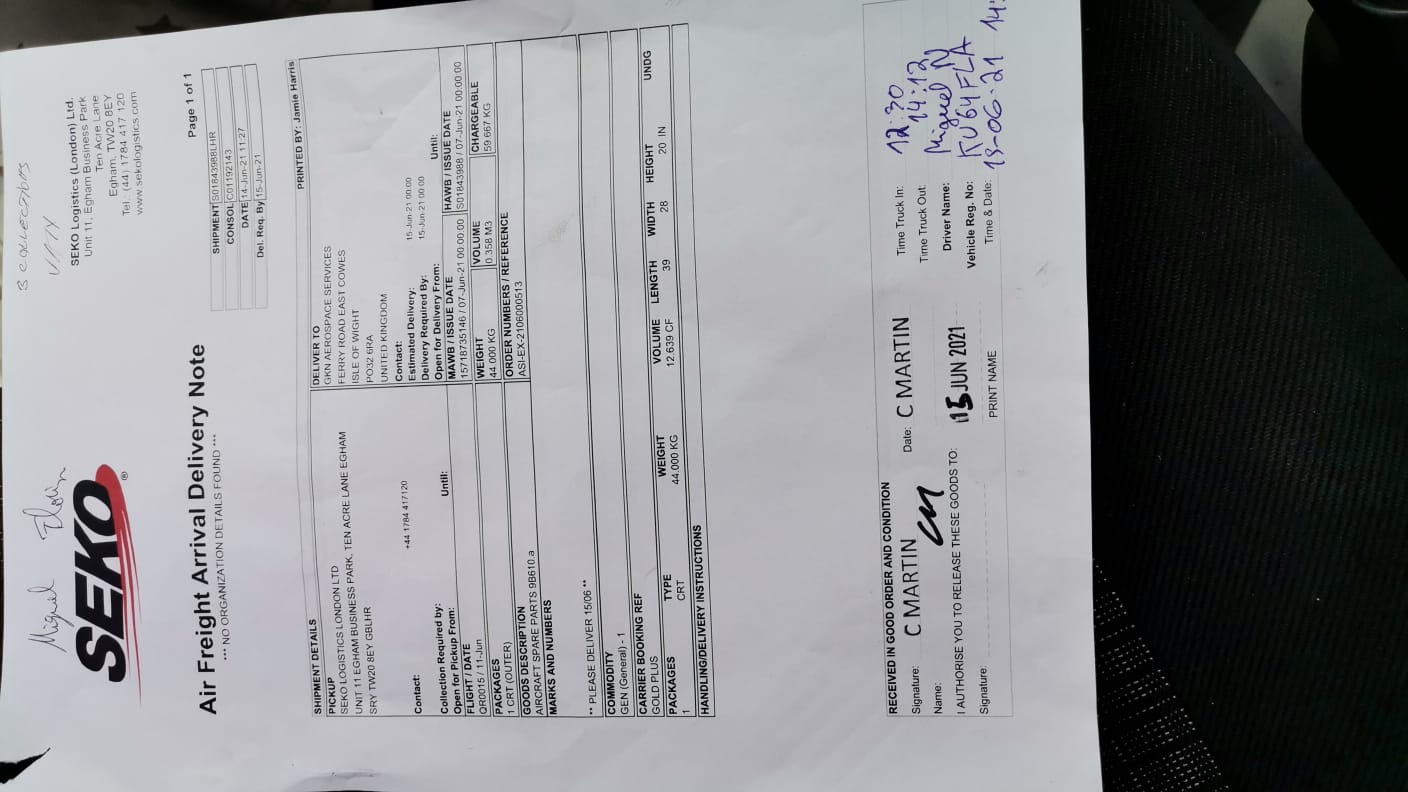 Miguel
SEKO®
SEKO Logistics (London) Ltd.
Unit 11, Egham Business Park
Ten Acre Lane
Egham, TW20 8EY
Tel. (44) 1784 417 120
www.sekologistics.com
Air Freight Arrival Delivery Note
*** NO ORGANIZATION DETAILS FOUND ***
Page 1 of 1
SHIPMENT S01843988LHR
CONSOL C01192143
DATE 14-Jun-21 11:27
Del. Req. By 15-Jun-21
PRINTED BY: Jamie Harris
SHIPMENT DETAILS
PICKUP
SEKO LOGISTICS LONDON LTD
UNIT 11 EGHAM BUSINESS PARK, TEN ACRE LANE EGHAM
SRY TW20 8EY GBLHR
Contact: +44 1784 417120
Collection Required by:
Open for Pickup From: Until:
DELIVER TO
GKN AEROSPACE SERVICES
FERRY ROAD EAST COWES
ISLE OF WIGHT
PO32 6RA
UNITED KINGDOM
Contact:
Estimated Delivery: 15-Jun-21 00:00
Delivery Required By: 15-Jun-21 00:00
Open for Delivery From: Until:
FLIGHT / DATE MAWB / ISSUE DATE HAWB / ISSUE DATE
QR0015 / 11-Jun 15718735146 / 07-Jun-21 00:00:00 S01843988 / 07-Jun-21 00:00:00
PACKAGES WEIGHT VOLUME CHARGEABLE
1 CRT (OUTER) 44.000 KG 0.358 M3 59.667 KG
GOODS DESCRIPTION ORDER NUMBERS / REFERENCE
AIRCRAFT SPARE PARTS 9B610.a ASI-EX-2106000513
MARKS AND NUMBERS
** PLEASE DELIVER 15/06 **
COMMODITY
GEN (General) - 1
CARRIER BOOKING REF
GOLD PLUS
PACKAGES TYPE WEIGHT VOLUME LENGTH WIDTH HEIGHT UNDG
1 CRT 44.000 KG 12.639 CF 39 28 20 IN
HANDLING/DELIVERY INSTRUCTIONS
RECEIVED IN GOOD ORDER AND CONDITION
Signature: C MARTIN Date: C MARTIN Time Truck In: 12:30
Name: CM Time Truck Out: 14:12
I AUTHORISE YOU TO RELEASE THESE GOODS TO: 15 JUN 2021 Driver Name: Miguel N
Vehicle Reg. No:
Signature: PRINT NAME Time & Date: